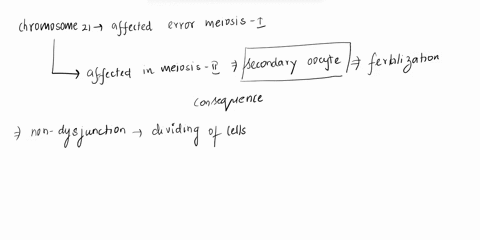 chromosome 21 → affected error meiosis-I
→ affected in meiosis-II ⇒ secondary oocyte ⇒ ferblization
consequence
⇒ non-dysjunction → dividing of cells